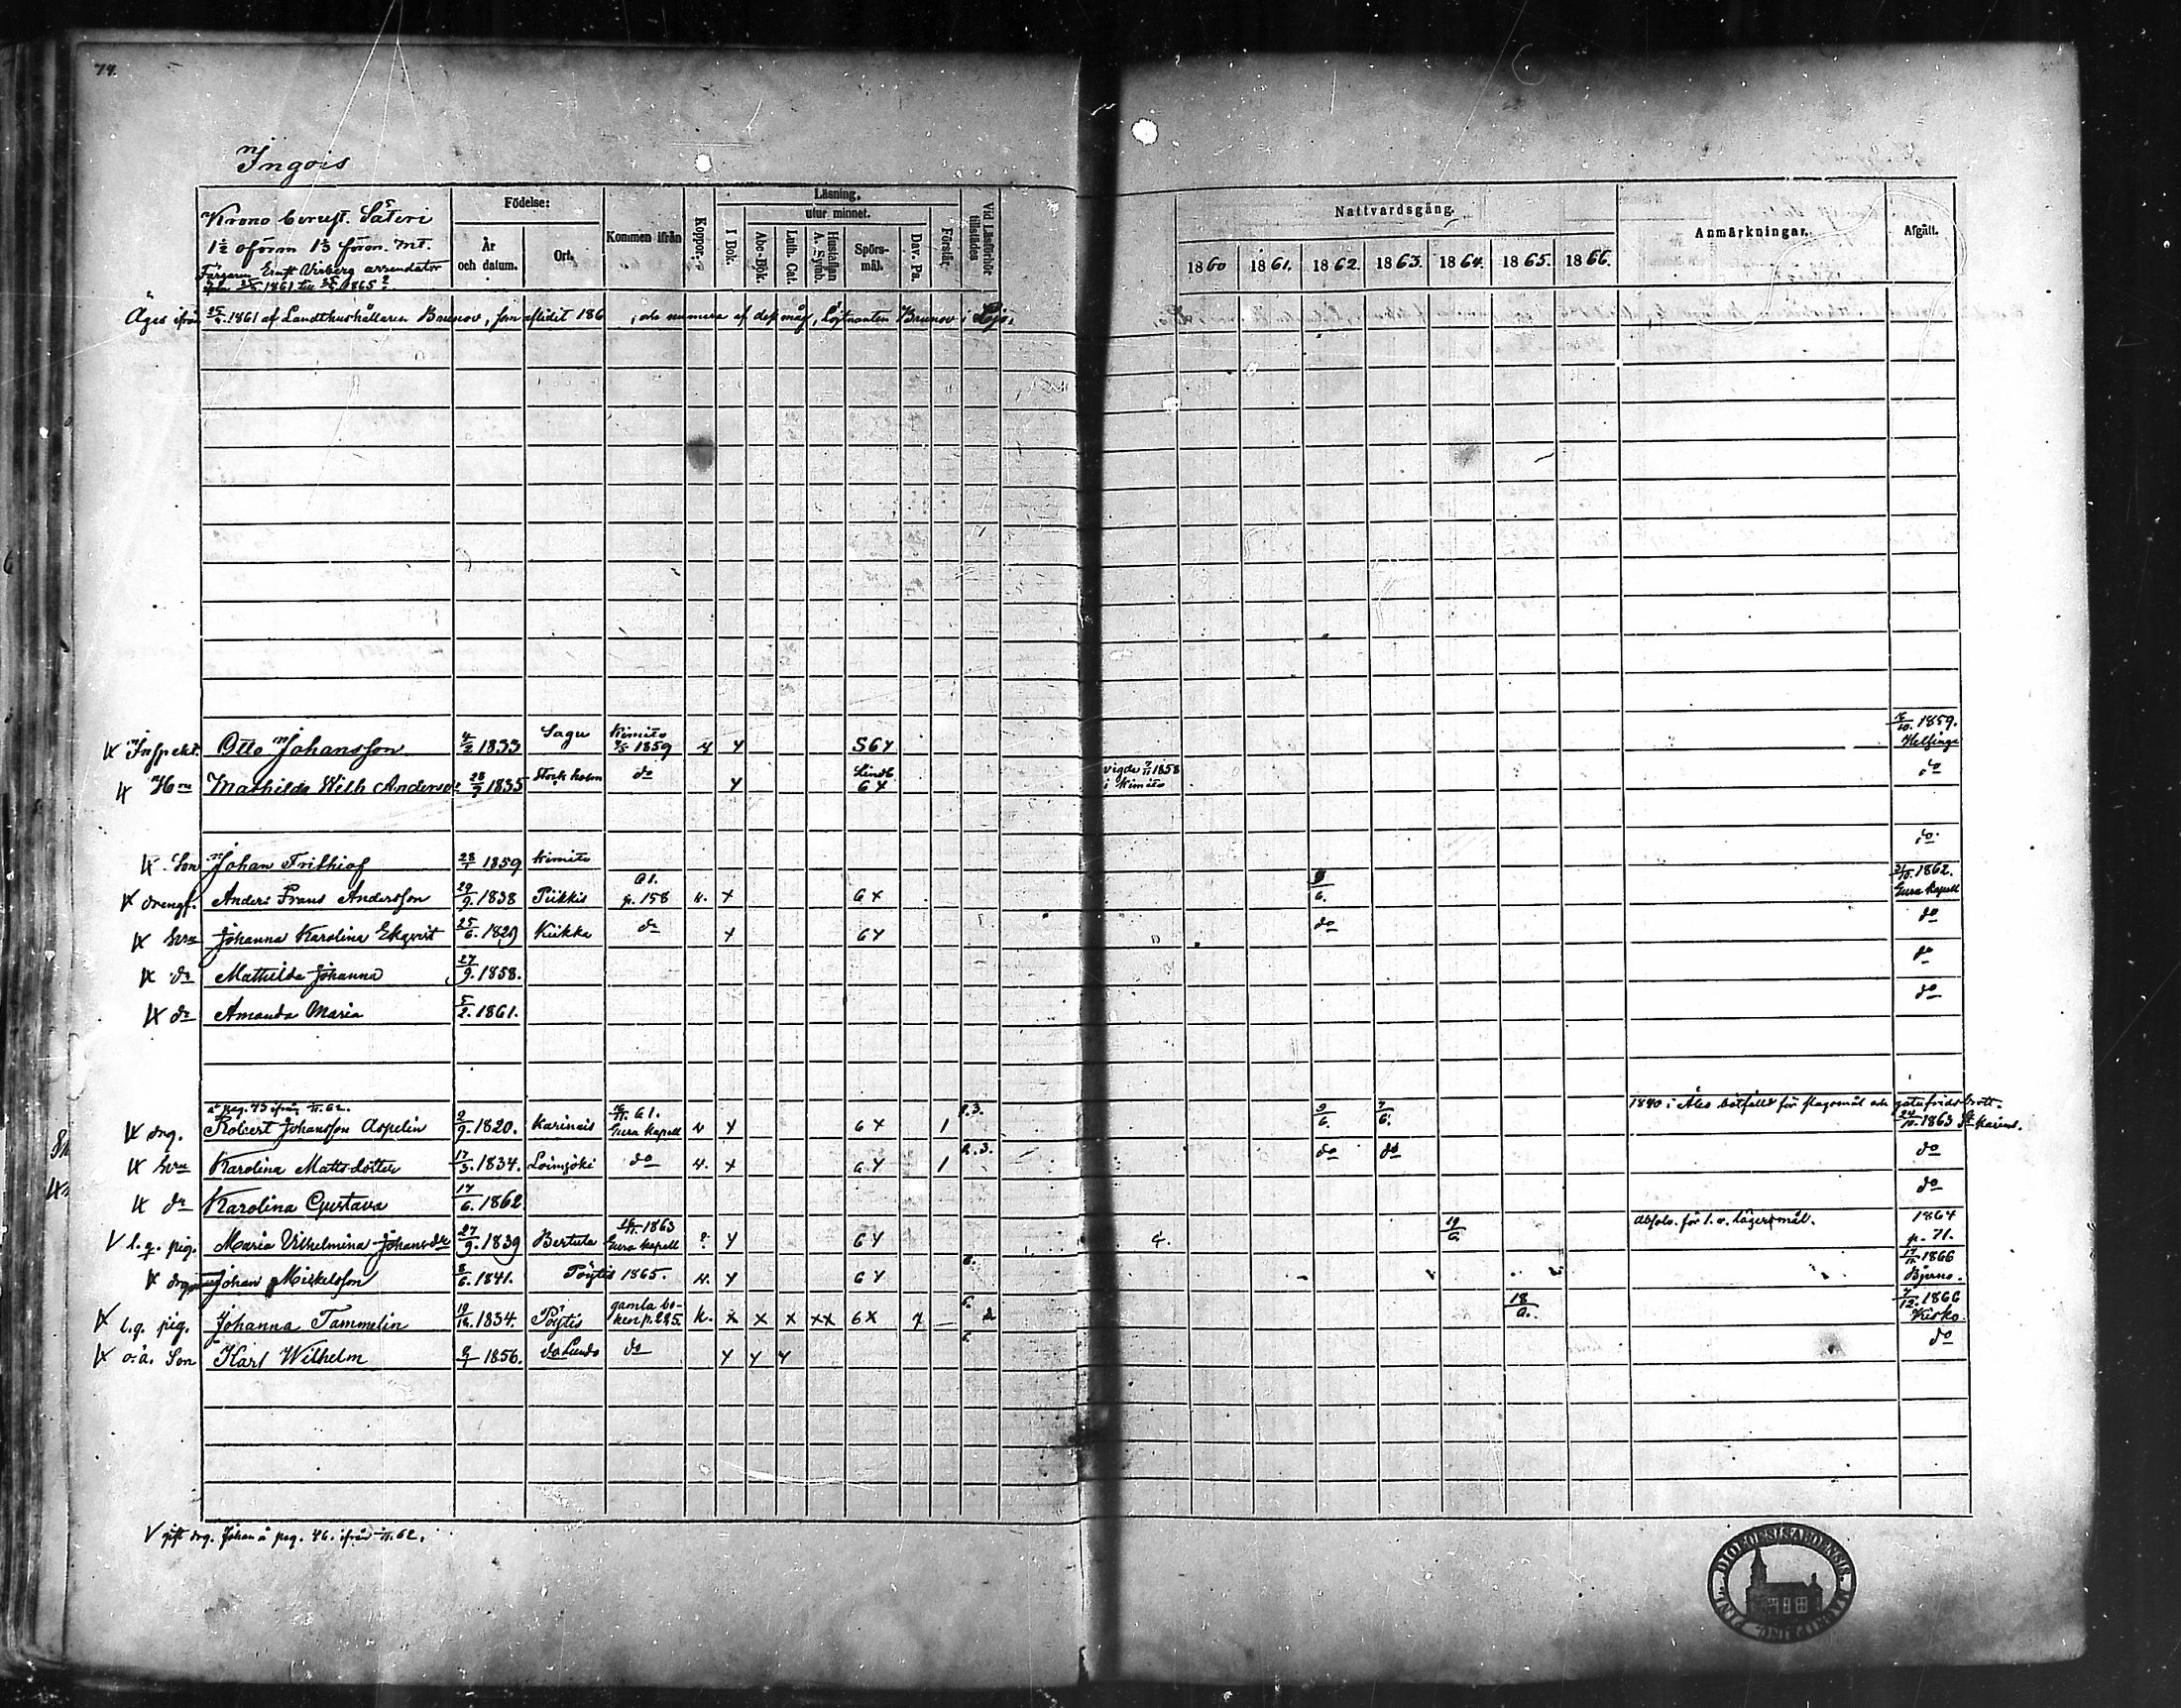 74.
Ingois
Krono berust. Säteri
1½ oförm 1⅓ förm. mt.
Färgaren Ernst Visberg arrendator
1861 till 1865
Födelse:
År och datum.
Ort.
Kommen ifrån
Koppor.
Läsning,
I Bok.
utur minnet.
Abc-Bok.
Luth. Cat.
Hustaflan A. Symb.
Spörsmål.
Dav. Ps.
Förstår.
Vid Läsförhör tillstädes
Nattvardsgång.
1860 1861. 1862. 1863. 1864. 1865. 1866.
Anmärkningar.
Afgått.
Äges ifrån 1861 af Landthushållaren Brunov, som aflidit 186 , och numera af dess måg, Löjtnanten Brunov i Lojo.
Inspekt. Otto Johansson 4/2 1833 Sagu Kimito 1859 S6Y 1859. Helsinge
Hon Mathilda Wilh Anderss 28/9 1835 Stockholm do Y 6Y vigda 1858 i Kimito do
Son Johan Frithiof 28/1 1859 Kimito do
drengs. Anders Frans Andersson 29/9. 1838 Piikkis 61. p. 158 X 6X 6. 1862. Eura Kapell
hon Johanna Karolina Ekqvist 25/6. 1829 Kiikka do Y 6Y do do
dr Mathilda Johanna 27/9. 1858. do
dr Amanda Maria 5/2. 1861. do
å pag. 73 ifrån 62.
drg. Robert Johansson Aspelin 2/9. 1820. Karinais 61. Eura Kapell Y 6Y 1 2.3. 9/6. 7/6. 1840 i Åbo bötfälld för slagsmål och gatufridsbrott. 1863 St Karins.
hon Karolina Mattsdotter 17/5. 1834. Loimijoki do Y 6Y 1 2.3. do do do
dr Karolina Gustava 17/6. 1862 do
l.q. pig. Maria Vilhelmina Johansdr 27/9. 1839 Bertula 1863 Eura Kapell ? Y 6Y 19/6. absolv. för l. lägersmål. 1864 p. 71.
drg Johan Mickelsson 8/6. 1841. Pöytis 1865. Y 6Y 1866 Bjerno.
l.q. pig. Johanna Tammelin 1834. Pöytis gamla boken p. 285. k. X X X XX 6X 18/6. 7/12. 1866 Kisko.
o.ä. Son Karl Wilhelm 1856. do Lundo do Y Y Y do
V gift drg. Johan å pag. 46. ifrån 62.
DIOECESIS ABOENSIS